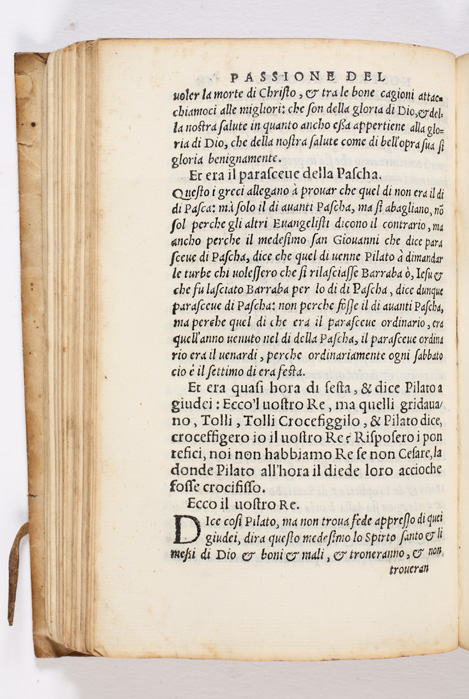 PASSIONE DEL
uoler la morte di Christo, & tra le bone cagioni attac-
chiamoci alle migliori: che son della gloria di Dio, & del-
la nostra salute in quanto ancho essa appertiene alla glo-
ria di Dio, che della nostra salute come di bell'opra sua si
gloria benignamente.
Et era il parasceue della Pascha.
Questo i greci allegano à prouar che quel dì non era il dì
di Pasca: mà solo il dì auanti Pascha, ma si abagliano, nõ
sol perche gli altri Euangelisti dicono il contrario, ma
ancho perche il medesimo san Giouanni che dice para
sceue di Pascha, dice che quel dì uenne Pilato à dimandar
le turbe chi uolessero che si rilasciasse Barraba ò, Iesu &
che fu lasciato Barraba per lo dì di Pascha, dice dunque
parasceue di Pascha: non perche fosse il dì auanti Pascha,
ma perche quel dì che era il parasceue ordinario, era
quell'anno uenuto nel dì della Pascha, il parasceue ordina
rio era il uenardi, perche ordinariamente ogni sabbato
cio è il settimo dì era festa.
Et era quasi hora di sesta, & dice Pilato a
giudei: Ecco'l uostro Re, ma quelli gridaua/
no, Tolli, Tolli Crocefiggilo, & Pilato dice,
croceffigero io il uostro Re? Risposero i pon
tefici, noi non habbiamo Re se non Cesare, la
donde Pilato all'hora il diede loro accioche
fosse crocifisso.
Ecco il uostro Re.
Dice così Pilato, ma non troua fede appresso di quei
giudei, dira questo medesimo lo Spirto santo & li
messi di Dio & boni & mali, & troneranno, & non
troueran